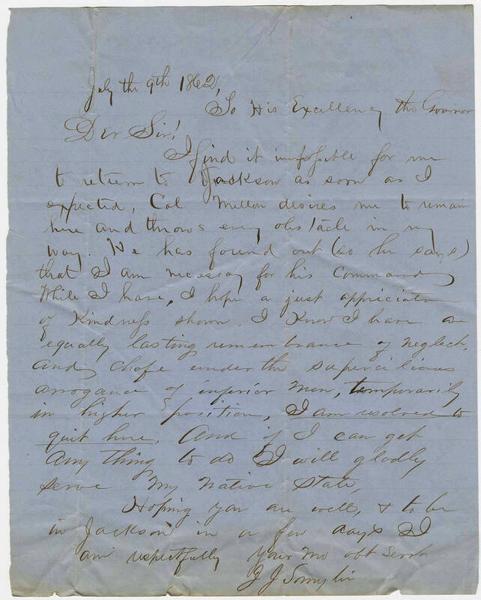 July the 9th 1862,
To His Excellency the Governor
Der Sir!
I find it impossible for me
to return to Jackson as soon as I
expected, Col Mellon desires me to remain
here and throws evey obstacle in my
way. He has found out (so he says)
that I am necessay for his Command
While I have, I hope a just appreciation
of Kindness shown. I Know I have an
equally lasting remembrance of neglect,
and chafe under the supercilious
arrogance of inferior men, temporarily
in higher position, I am resolved to
quit here. And if I can get
any thing to do I will gladly
serve my Native State,
Hoping you are well, & to be
in Jackson in a few days I
am respectfully Your Mo obt Servt
J J